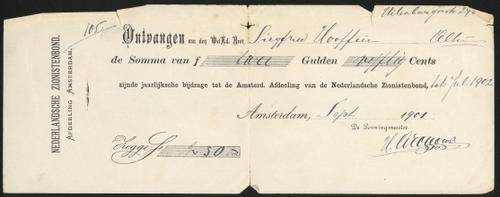 105
NEDERLANDSCHE ZIONISTENBOND.
AFDEELING AMSTERDAM.
Ontvangen van den WelEd. Heer Siegfried
de Somma van f twee Gulden vijftig Cents
zijnde jaarlijksche bijdrage tot de Amsterd. Afdeeling van de Nederlandsche Zionistenbond, tot Juli 1902
Amsterdam, Sept. 1901
De Penningmeester
Zegge f 2.50